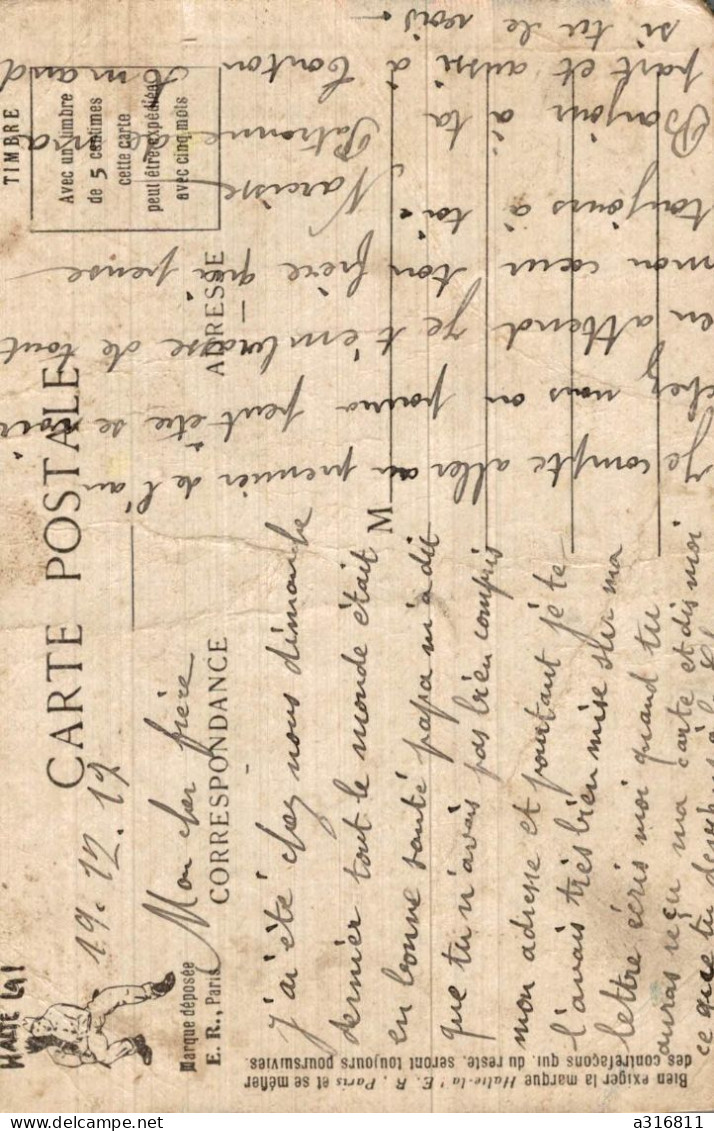 HALTE LÀ!
Marque déposée
E. R., Paris
CARTE POSTALE
CORRESPONDANCE
ADRESSE
TIMBRE
Avec un timbre
de 5 centimes
cette carte
peut être expédiée
avec cinq mots
M
Bien exiger la marque Halte-là! E. R., Paris et se méfier
des contrefaçons qui, du reste, seront toujours poursuivies.
19.12.17
Mon cher frère
J'ai été chez nous dimanche
dernier tout le monde était
en bonne santé papa m'a dit
que tu n'avais pas bien compris
mon adresse et pourtant je te
l'avais très bien mise sur ma
lettre écris moi quand tu
auras reçu ma carte et dis moi
ce que tu
Je compte aller au premier de l'an
chez nous on pourra peut être se voir
en attend je t'embrasse de tout
mon cœur ton frère qui pense
toujours à toi. Narcisse
Bonjour à ta Patronne de ma
part et aussi à tonton Amand
si tu le vois.
a316811 delcampe.net